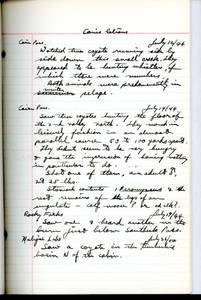 Canis latrans
Cairn Pass. July 12/44
Watched two coyotes running side by
side down this small creek. They
appeared to be hunting whistlers, of
which there were numbers.
Both animals were predominantly in
winter
pelage.
Cairn Pass. July 14/44
Saw two coyotes hunting the floor of
the valley north. They hunted
leisurely fashion in an almost
parallel course 50 to 100 yards apart.
They didn't seem to be hungry
& gave the impression of having nothing
in particular to do.
Shot one of them, an adult ♂,
Wt 25 lbs.
Stomach contents 1 Peromyscus & the
rest remains of the legs of an
ungulate - calf moose? or elk?
Rocky Forks July 19/44
Saw one & heard another in the
burn just below Southesk Pass.
Maligne Lake July 31/44
Saw a coyote in the timberline
basin N of the cabin.